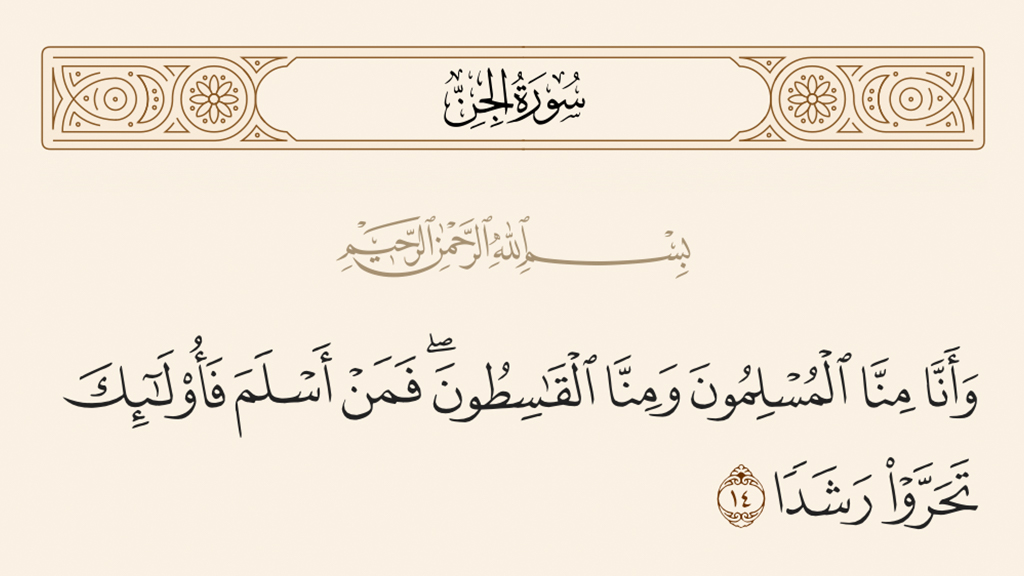 سُورَةُ الجِنِّ
بِسْمِ ٱللَّهِ ٱلرَّحْمَٰنِ ٱلرَّحِيمِ
وَأَنَّا مِنَّا ٱلْمُسْلِمُونَ وَمِنَّا ٱلْقَٰسِطُونَ ۖ فَمَنْ أَسْلَمَ فَأُو۟لَٰٓئِكَ
تَحَرَّوْا۟ رَشَدًا ١٤